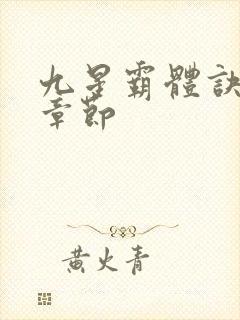 九星霸體訣
章節
黄火青